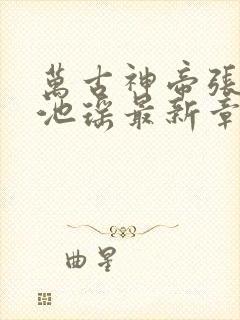 萬古神帝張
池瑤最新章
曲星